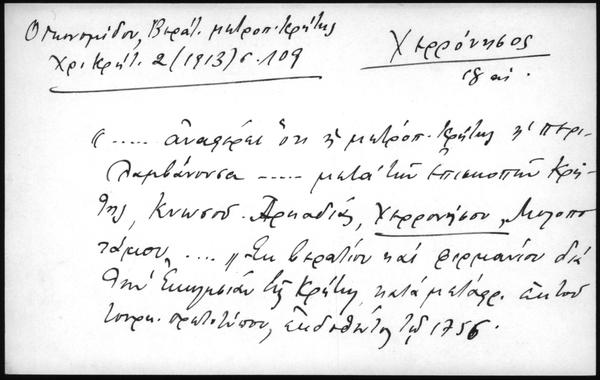 Οικονομίδου, Βεράτ. μητροπ. Κρήτης
Χρ. Κρήτ. 2 (1913) σ. 109
Χερρόνησος
ιη αι.
"..... αναφέρει ότι η μητρόπ. Κρήτης η περι-
λαμβάνουσα ..... μετά των επισκοπών Κρή-
της, Κνωσού, Αρκαδίας, Χερρονήσου, Μυλοπο-
τάμου, .... " Εκ βερατίου και φιρμανίου διά
την Εκκλησίαν της Κρήτης, κατά μετάφρ. εκ του
τουρκ. πρωτοτύπου, εκδοθέντος τω 1756.